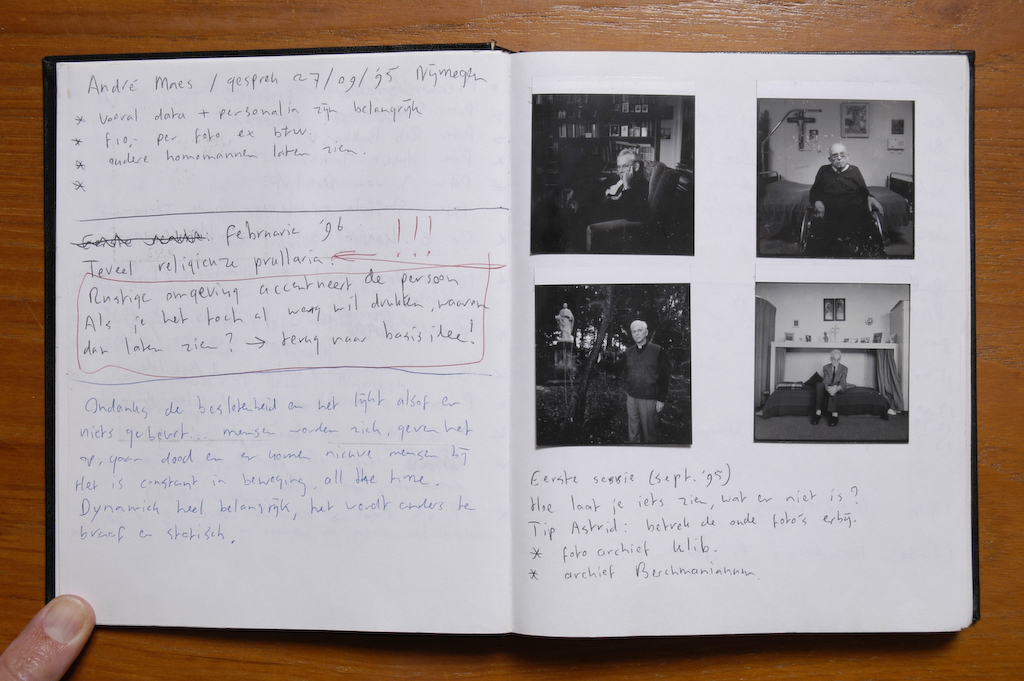 André Maes / gesprek 27/09/'95 Nijmegen
* vooral data + personalia zijn belangrijk
* f10,- per foto ex btw.
* oudere homomannen laten zien.
*
Eerste februarie '96 !!!
Teveel religieuze prullaria.
Rustige omgeving accentueert de persoon
Als je het toch al weg wil drukken, waarom
dan laten zien? → terug naar basisidee!
Ondanks de beslotenheid en het lijkt alsof er
niets gebeurt... mensen worden ziek, geven het
op, gaan dood en er komen nieuwe mensen bij
Het is constant in beweging, all the time.
Dynamiek heel belangrijk, het wordt anders te
braaf en statisch.
Eerste sessie (sept. '95)
Hoe laat je iets zien, wat er niet is?
Tip Astrid: betrek de oude foto's erbij.
* foto archief
* archief Berchmanianum.